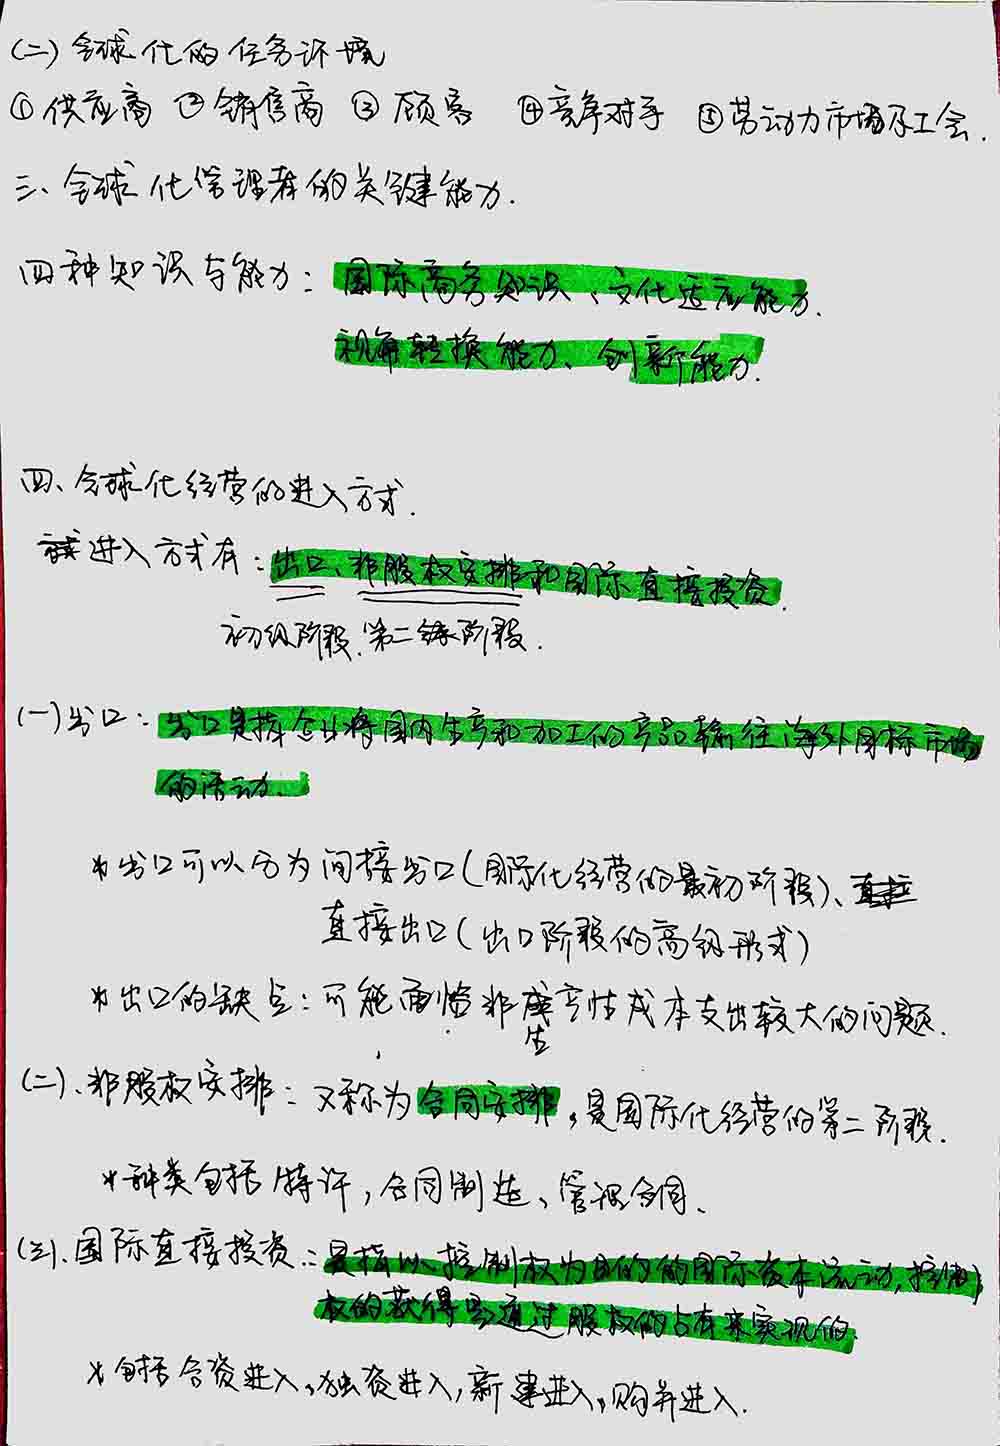 (二) 全球化的任务环境
① 供应商 ② 销售商 ③ 顾客 ④ 竞争对手 ⑤ 劳动力市场及工会.
三、全球化管理者的关键能力.
四种知识与能力: 国际商务知识、文化适应能力.
视角转换能力、创新能力.
四、全球化经营的进入方式.
进入方式有: 出口、非股权安排和国际直接投资.
初级阶段. 第二阶段.
(一) 出口: 出口是指企业将国内生产和加工的产品输往海外目标市场
的活动.
* 出口可以分为间接出口(国际化经营的最初阶段)、
直接出口(出口阶段的高级形式)
* 出口的缺点: 可能面临非生产性成本支出较大的问题.
(二). 非股权安排: 又称为合同安排, 是国际化经营的第二阶段.
* 种类包括特许, 合同制造、管理合同.
(三). 国际直接投资: 是指以控制权为目的的国际资本流动, 控制
权的获得是通过股权的占有来实现的.
* 包括合资进入, 独资进入, 新建进入, 购并进入.